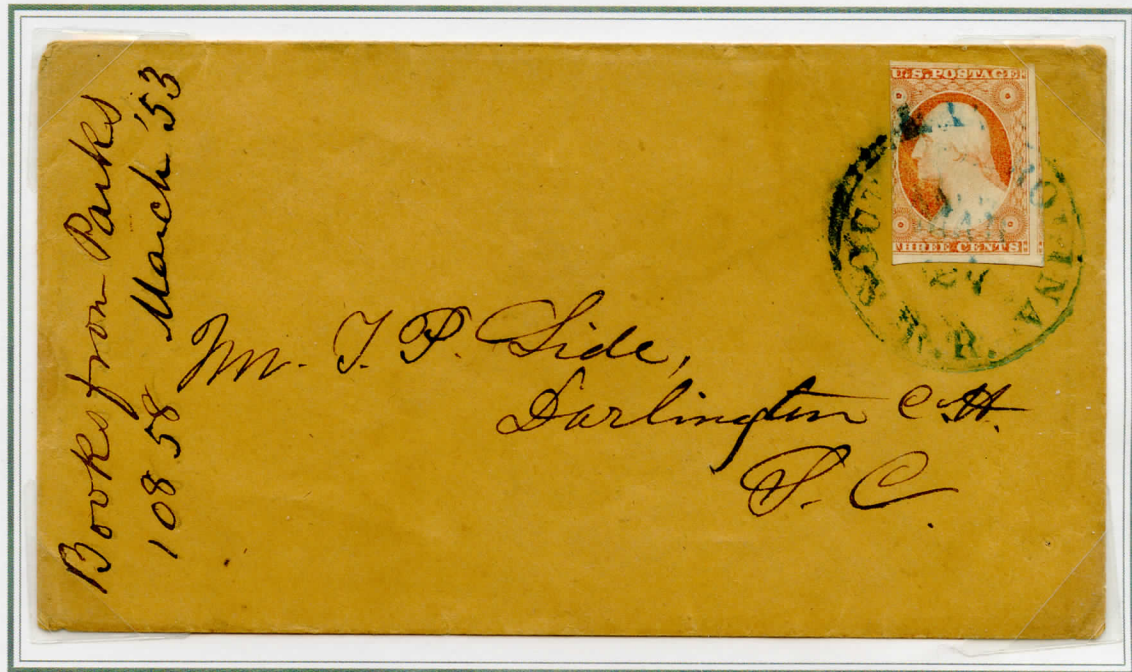 Books from Parks
108 58 March '53
U.S. POSTAGE
THREE CENTS
SOUTH CAROLINA
R.R.
Mr. T. P. Lide,
Darlington C.H.
S. C.